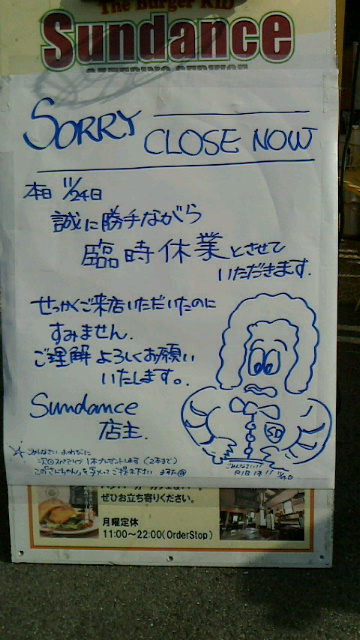 The Burger KID
Sundance
SORRY
CLOSE NOW
本日 11/24日
誠に勝手ながら
臨時休業とさせて
いただきます.
せっかくご来店いただいたのに
すみません.
ご理解よろしくお願い
いたします。.
Sundance
店主.
SD
ぜひお立ち寄りください。
月曜定休
11:00〜22:00(OrderStop)